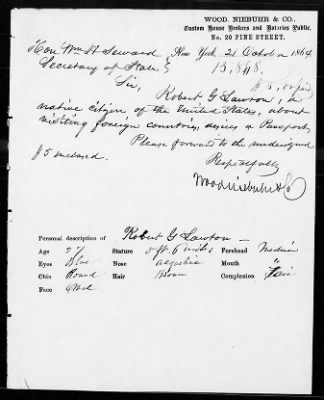 WOOD, NIEBUHR & CO.,
Custom House Brokers and Notaries Public,
No. 20 PINE STREET.
New York 21 October 1864
Hon Wm H Seward
Secretary of State
15,848
Sir,
Robert G Lawton, a
native citizen of the United States, about
visiting foreign countries, desires a Passport,
Please forward to the undersigned
$5 enclosed.
Respectfully
Wood Niebuhr & Co
Personal description of Robert G Lawton
Age 27 Stature 5 ft. 6 inches Forehead Medium
Eyes Blue Nose Acqueline Mouth "
Chin Round Hair Brown Complexion Fair
Face Oval